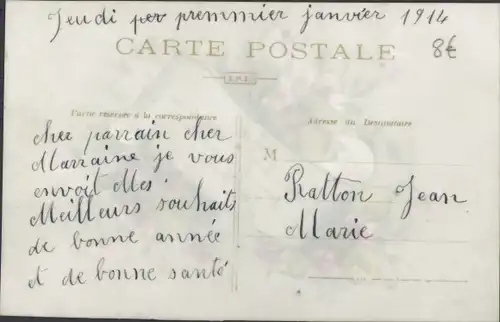 Jeudi per premmier janvier 1914
CARTE POSTALE
8€
Carte réservée à la correspondance
Adresse du Destinataire
cher parrain cher
Marraine je vous
envoit Mes
Meilleurs souhaits
de bonne année
et de bonne santé
M
Ratton Jean
Marie